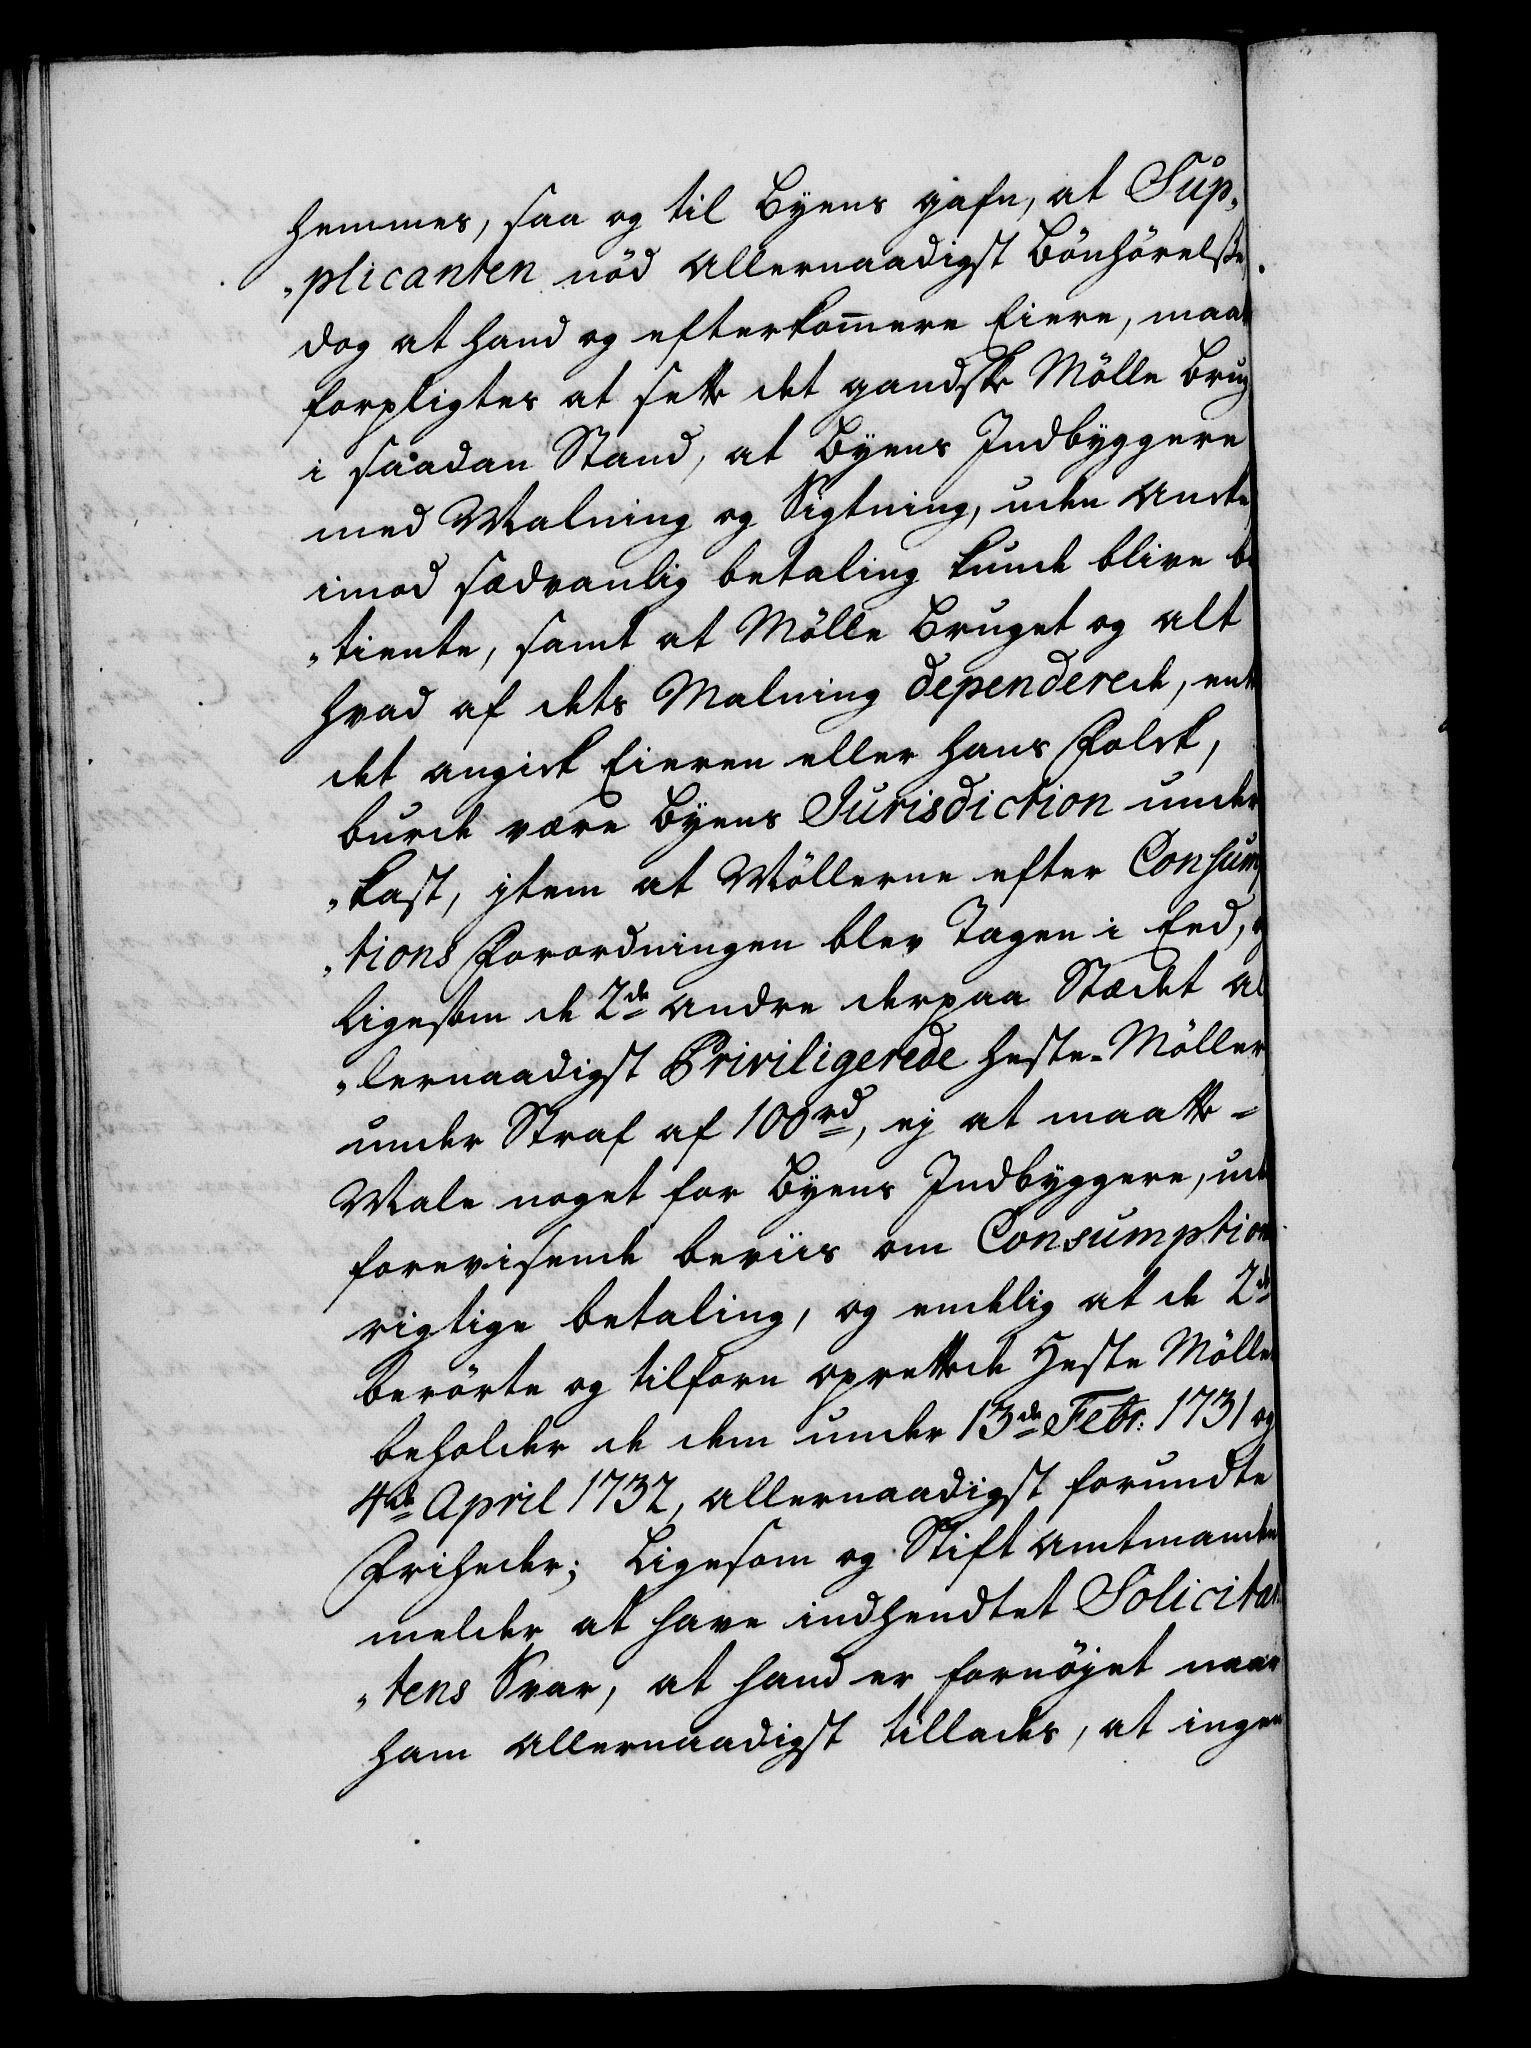 hemmes, saa og til Byens gafn, at Sup„
„plicanten nöd allernaadigst Bönhörelse
dog at hand og efterkom̅ere Eiere, maat
forpligtes at sette det gandske Mölle Brug
i saadan Stand, at Byens Indbyggere
med Malning og Sigtning, uden Ancke
imod sædvanlig betaling kunde blive be
„tiente, samt at Mölle Bruget og alt
hvad af dets Malning dependerede, ent
det angick Eieren eller hans Folck,
burde være Byens Jurisdiction under
„kast, jtem at Möllerne efter Consum
„tions Forordningen blev Tagen i Eed, og
ligesom de 2de andre derpaa Stædet al
„lernaadigst Priviligerede Heste-Möller
under Straf af 100 rd, ej at maatte =
Male noget for Byens Indbyggere, ude
forevisende beviis om Consumption
rigtige betaling, og endelig at de 2de
berörte og tilforn oprettede Heste Mölle
beholder de dem under 13de Febr: 1731 og
4de April 1732, allernaadigst forundte
Friheder; Ligesom og Stift Amtmanden
melder at have indhendtet Solicitan
„tens Svar, at hand er fornöjet naar
ham allernaadigst tillades, at ingen